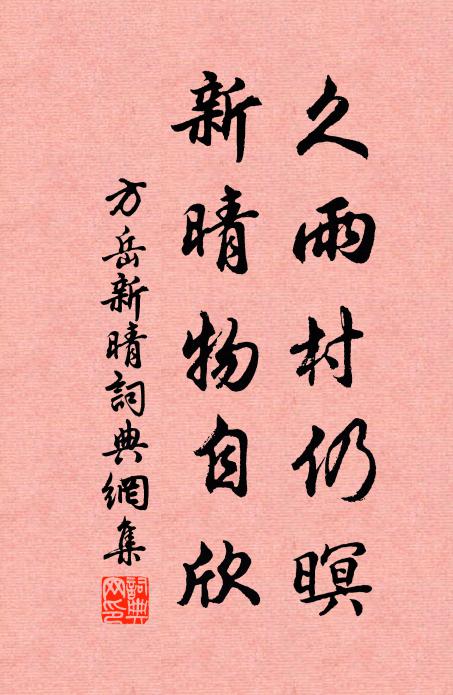 久雨村仍暝
新晴物自欣
方岳新晴詞典網集
詞典
网印